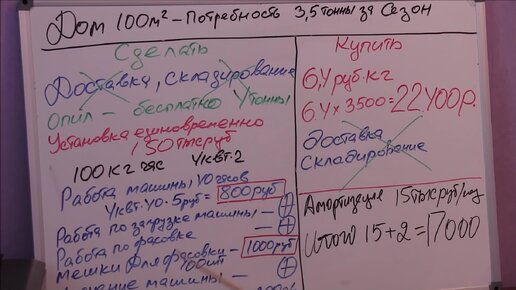 Дом 100м² – Потребность 3,5 тонны за Сезон
Сделать
Доставка, Складирование
Опил – бесплатно 4 тонны
Установка единовременно
150 тыс руб
100 кг час 4 квт.ч
Работа машины 40 часов
4 квт. 40 · 5 руб = 800 руб
Работа по загрузке машины – +
Работа по фасовке – +
Мешки для фасовки – 1000 руб
100 шт
машины – +
Купить
6,4 руб. кг
6.4 × 3500 = 22400 р.
Доставка
Складирование
Амортизация 15 тыс руб/
Итого 15+2=17000